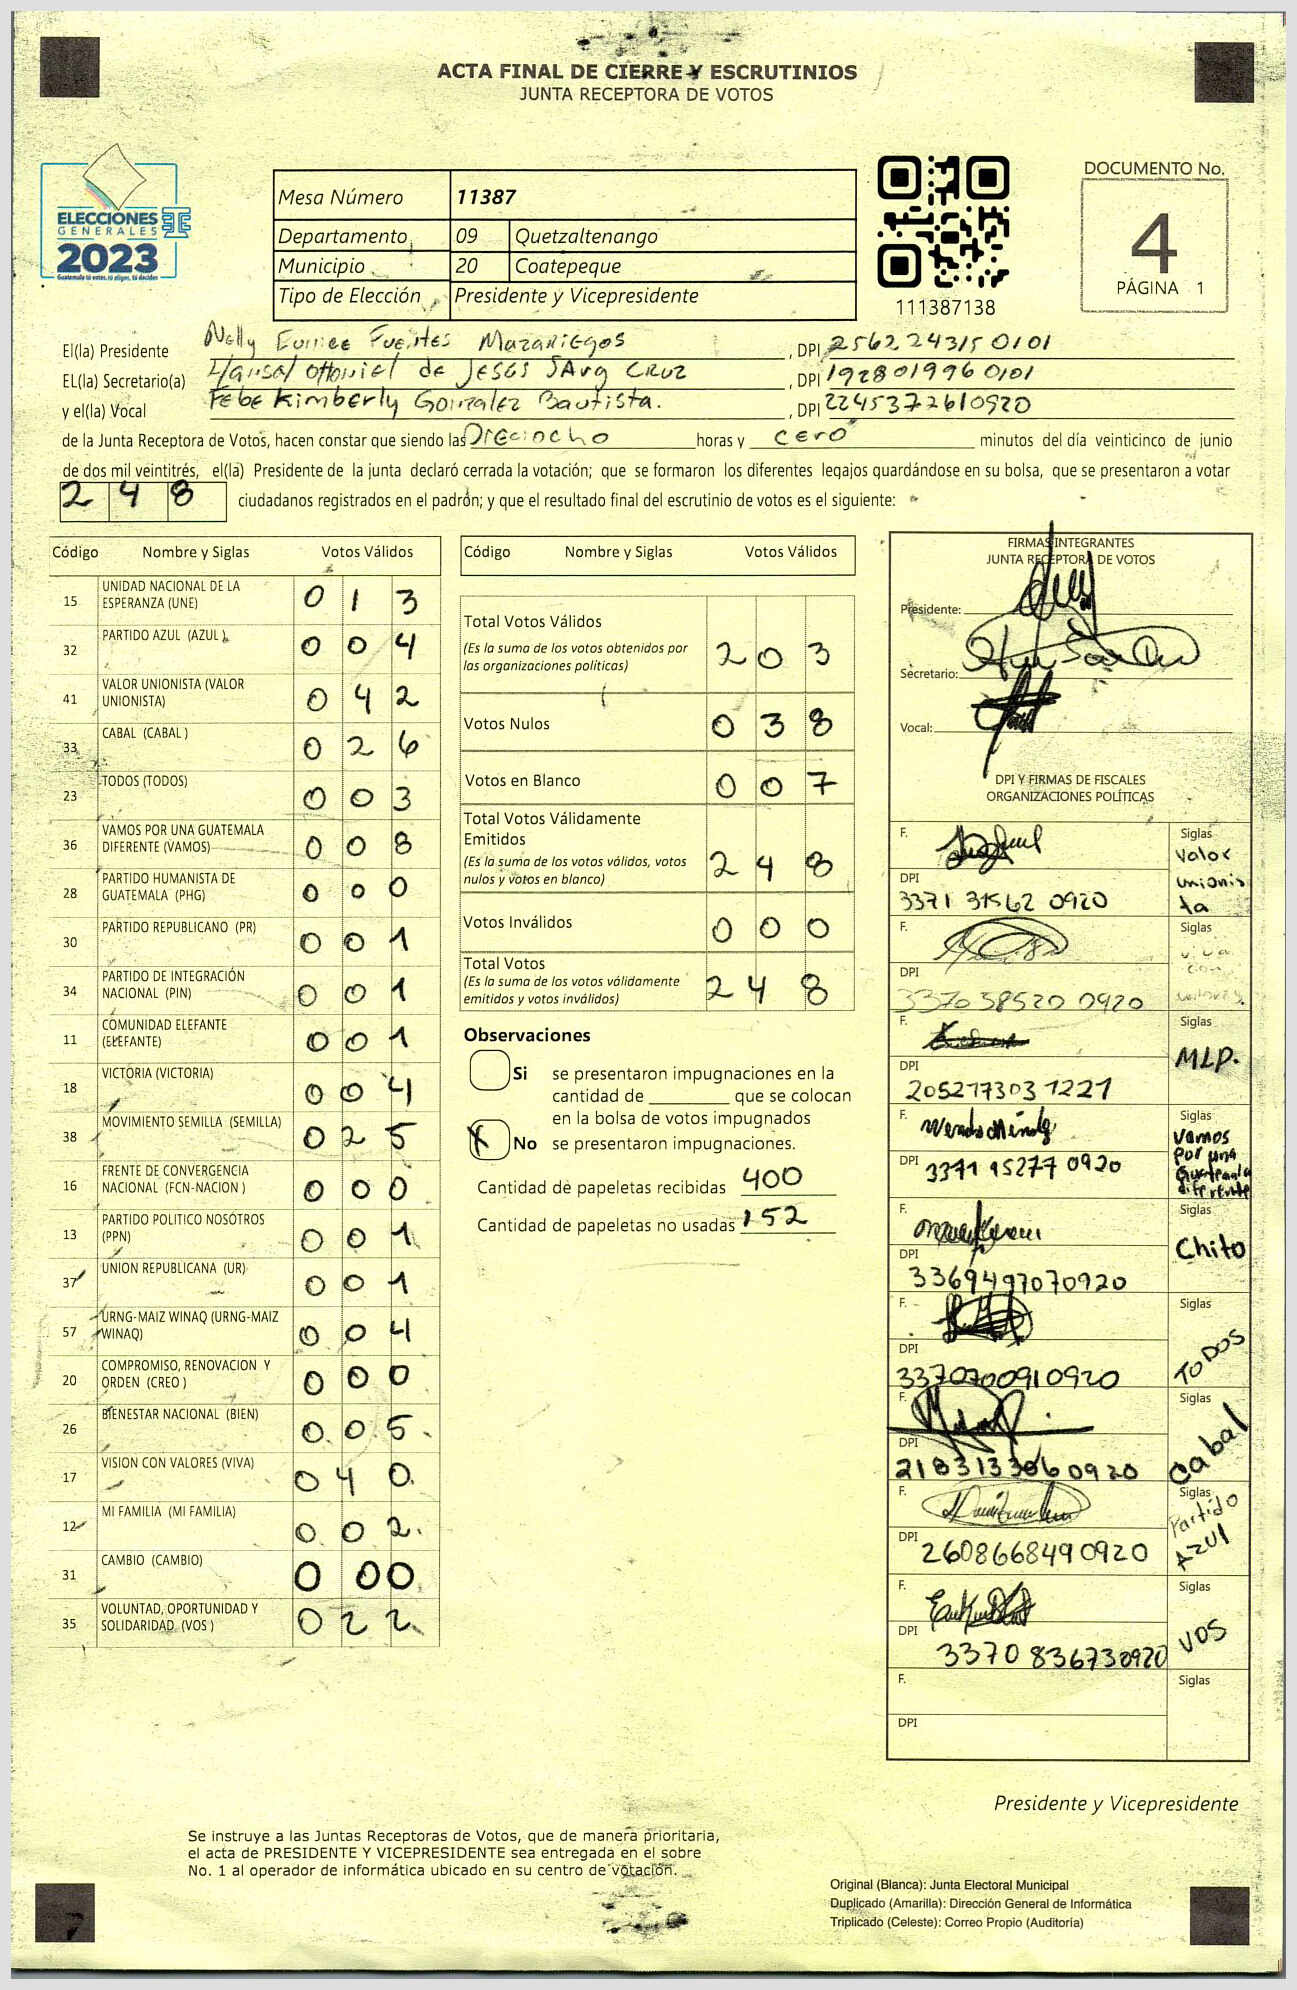 ACTA FINAL DE CIERRE Y ESCRUTINIOS
JUNTA RECEPTORA DE VOTOS
ELECCIONES
GENERALES
2023
Guatemala tú votes, tú eliges, tú decides
Mesa Número 11387
Departamento 09 Quetzaltenango
Municipio 20 Coatepeque
Tipo de Elección Presidente y Vicepresidente
111387138
DOCUMENTO No.
4
PÁGINA 1
El(la) Presidente Nelly Eunice Fuentes Mazariegos, DPI 2562243150101
EL(la) Secretario(a) Ottoniel de JESÚS CRUZ, DPI 1928019960101
y el(la) Vocal Febe Kimberly Gonzalez Bautista., DPI 2245372610920
de la Junta Receptora de Votos, hacen constar que siendo las Dieciocho horas y cero minutos del día veinticinco de junio
de dos mil veintitrés, el(la) Presidente de la junta declaró cerrada la votación; que se formaron los diferentes legajos guardándose en su bolsa, que se presentaron a votar
248 ciudadanos registrados en el padrón; y que el resultado final del escrutinio de votos es el siguiente:
Código Nombre y Siglas Votos Válidos
15 UNIDAD NACIONAL DE LA ESPERANZA (UNE) 013
32 PARTIDO AZUL (AZUL ) 004
41 VALOR UNIONISTA (VALOR UNIONISTA) 042
33 CABAL (CABAL ) 026
23 TODOS (TODOS) 003
36 VAMOS POR UNA GUATEMALA DIFERENTE (VAMOS) 008
28 PARTIDO HUMANISTA DE GUATEMALA (PHG) 000
30 PARTIDO REPUBLICANO (PR) 001
34 PARTIDO DE INTEGRACIÓN NACIONAL (PIN) 001
11 COMUNIDAD ELEFANTE (ELEFANTE) 001
18 VICTORIA (VICTORIA) 004
38 MOVIMIENTO SEMILLA (SEMILLA) 025
16 FRENTE DE CONVERGENCIA NACIONAL (FCN-NACION ) 000
13 PARTIDO POLITICO NOSOTROS (PPN) 001
37 UNION REPUBLICANA (UR) 001
57 URNG-MAIZ WINAQ (URNG-MAIZ WINAQ) 004
20 COMPROMISO, RENOVACION Y ORDEN (CREO ) 000
26 BIENESTAR NACIONAL (BIEN) 005.
17 VISION CON VALORES (VIVA) 040.
12 MI FAMILIA (MI FAMILIA) 002.
31 CAMBIO (CAMBIO) 000
35 VOLUNTAD, OPORTUNIDAD Y SOLIDARIDAD (VOS ) 022
Código Nombre y Siglas Votos Válidos
Total Votos Válidos
(Es la suma de los votos obtenidos por
las organizaciones políticas) 203
Votos Nulos 038
Votos en Blanco 007
Total Votos Válidamente
Emitidos
(Es la suma de los votos válidos, votos
nulos y votos en blanco) 248
Votos Inválidos 000
Total Votos
(Es la suma de los votos válidamente
emitidos y votos inválidos) 248
Observaciones
Si se presentaron impugnaciones en la
cantidad de ________ que se colocan
en la bolsa de votos impugnados
X No se presentaron impugnaciones.
Cantidad de papeletas recibidas 400
Cantidad de papeletas no usadas 152
FIRMAS INTEGRANTES
JUNTA RECEPTORA DE VOTOS
Presidente:
Secretario:
Vocal:
DPI Y FIRMAS DE FISCALES
ORGANIZACIONES POLÍTICAS
F. Siglas
Valor
unionis
ta
DPI
3371 31562 0920
F. Siglas
viva
con
valores.
DPI
3370 38520 0920
F. Siglas
MLP.
DPI
205217303 1221
F. Siglas
Vamos
por una
Guatemala
diferente
DPI 3371 95277 0920
F. Siglas
Chito
DPI
3369497070920
F. Siglas
TODOS
DPI
3370700910920
F. Siglas
Cabal
DPI
2183133060920
F. Siglas
Partido
AZUL
DPI 2608668490920
F. Siglas
VOS
DPI
3370 836730920
F. Siglas
DPI
Presidente y Vicepresidente
Se instruye a las Juntas Receptoras de Votos, que de manera prioritaria,
el acta de PRESIDENTE Y VICEPRESIDENTE sea entregada en el sobre
No. 1 al operador de informática ubicado en su centro de votación.
Original (Blanca): Junta Electoral Municipal
Duplicado (Amarilla): Dirección General de Informática
Triplicado (Celeste): Correo Propio (Auditoría)